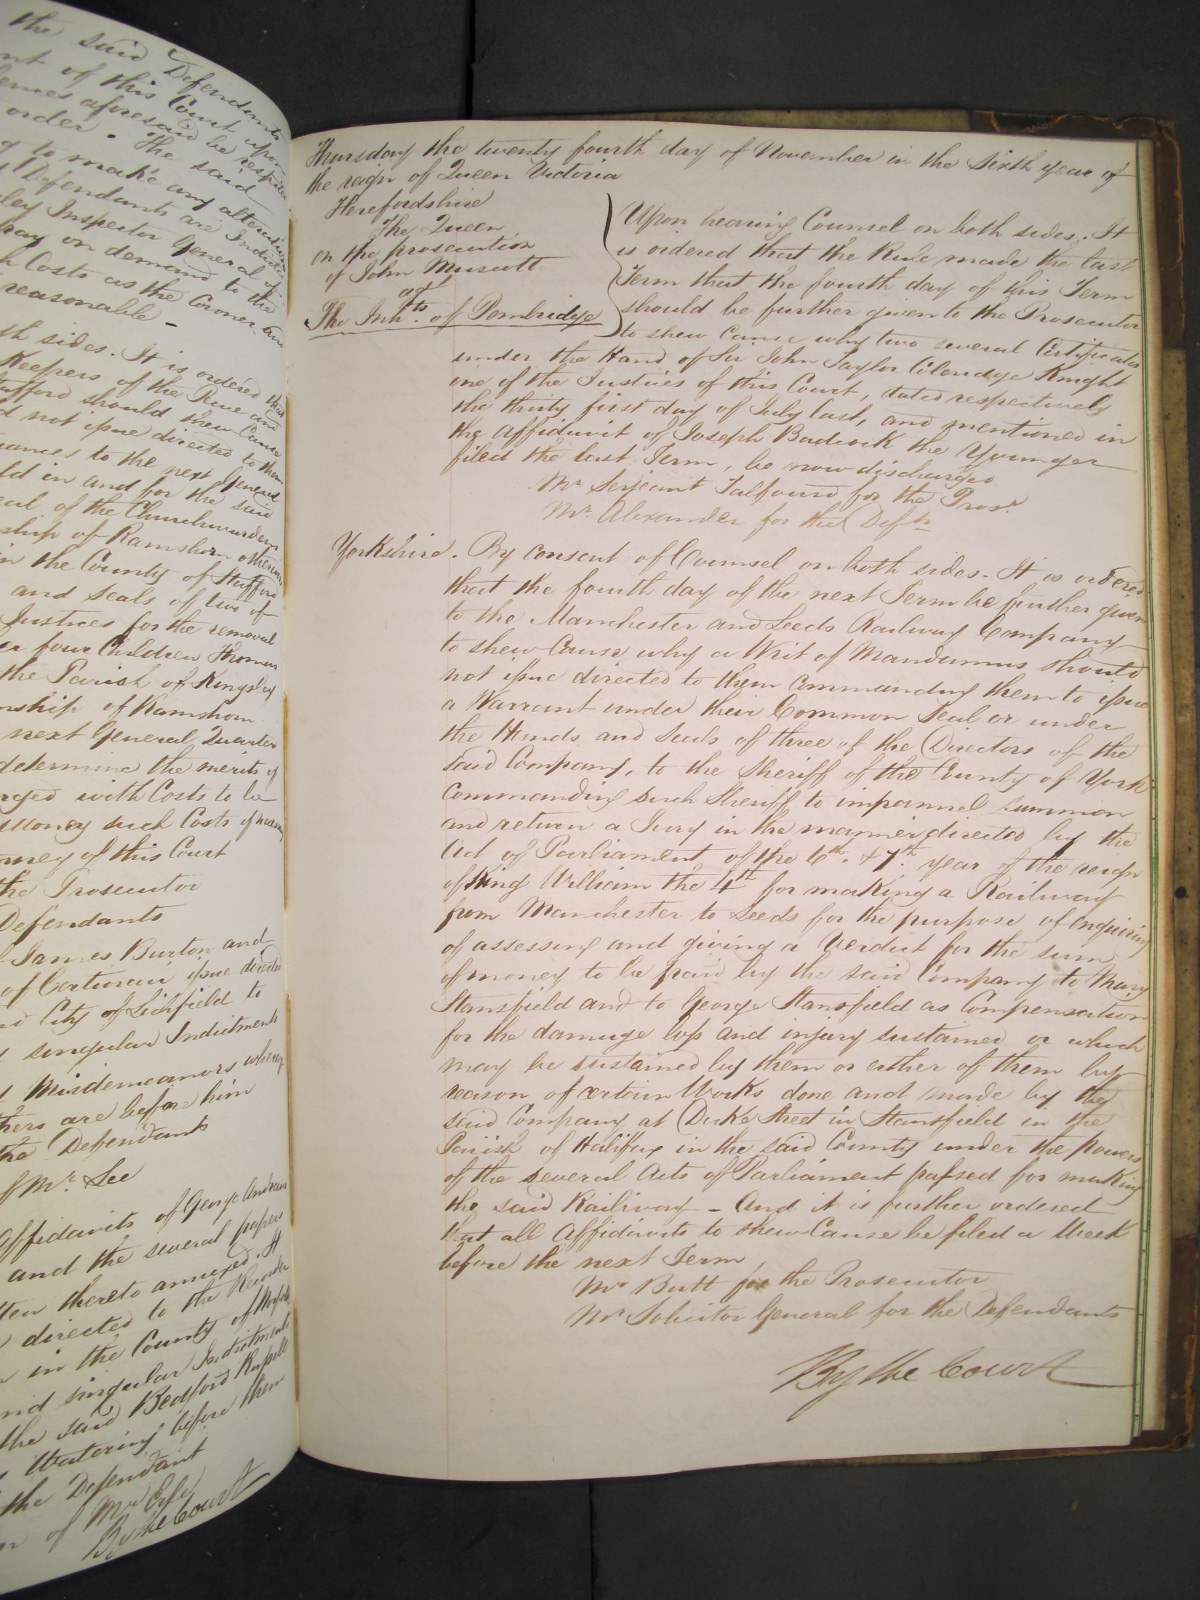 the said Defendants
nt of this Court upon
aforesaid be
order. The said
to make any alteration
Defendants are Indicted
ley Inspector General
pay on demand to the
h Costs as the Coroner and
reasonable -
th sides. It is ordered that
Keepers of the Peace and
tafford should shew Cause
d not issue directed to them
to the next General
ld in and for the said
of the Churchwardens
ship of Ramshorn otherwise
in the County of Stafford
and Seals of two of
Justices for the removal
four Children Thomas
the Parish of Kingsley
nship of Ramshorn
next General Quarter
determine the merits of
with Costs to be
Money such Costs
of this Court
the Prosecutor
Defendants
James Burton and
of Certiorari issue directed
City of Lichfield to
singular Indictments
Misdemeanors whereof
thers are before him
the Defendants
of Mr. Lee
Affidavits of George Andrews
and the several papers
thereto annexed. It
directed to the Recorder
in the County of Norfolk
nd singular Indictments
the said Bedford Russell
Watering before them
the Defendant
of Mr Erle
By the Court
Thursday the twenty fourth day of November in the Sixth year of
the reign of Queen Victoria
Herefordshire
The Queen
on the prosecution
of John Muscott
agt
The Inhts. of Pembridge
Upon hearing Counsel on both sides. It
is ordered that the Rule made the last
Term that the fourth day of this Term
should be further given to the Prosecutor
to shew Cause why two several Certificates
under the Hand of Sir John Taylor Coleridge Knight
one of the Justices of this Court, dated respectively
the thirty first day of July last, and mentioned in
the affidavit of Joseph Badcock the Younger
filed the last Term, be now discharged
Mr Serjeant Talfourd for the Prosr.
Mr. Alexander for the Defts
Yorkshire. By consent of Counsel on both sides. It is ordered
that the fourth day of the next Term be further given
to the Manchester and Leeds Railway Company
to shew Cause why a Writ of Mandamus should
not issue directed to them commanding them to issue
a Warrant under their Common Seal or under
the Hands and Seals of three of the Directors of the
said Company, to the Sheriff of the County of York
commanding such Sheriff to impannel summon
and return a Jury in the manner directed by the
Act of Parliament, of the 6th. & 7th. year of the reign
of King William the 4th for making a Railway
from Manchester to Leeds for the purpose of enquiring
of assessing and giving a Verdict for the sum
of money to be paid by the said Company to Mary
Stansfield and to George Stansfield as Compensation
for the damage loss and injury sustained or which
may be sustained by them or either of them by
reason of certain Works done and made by the
said Company at Duke Street in Stansfield in the
Parish of Halifax in the said County under the powers
of the several Acts of Parliament passed for making
the said Railway - And it is further ordered
that all Affidavits to shew Cause be filed a Week
before the next Term
Mr Butt for the Prosecutor
Mr Solicitor General for the Defendants
By the Court